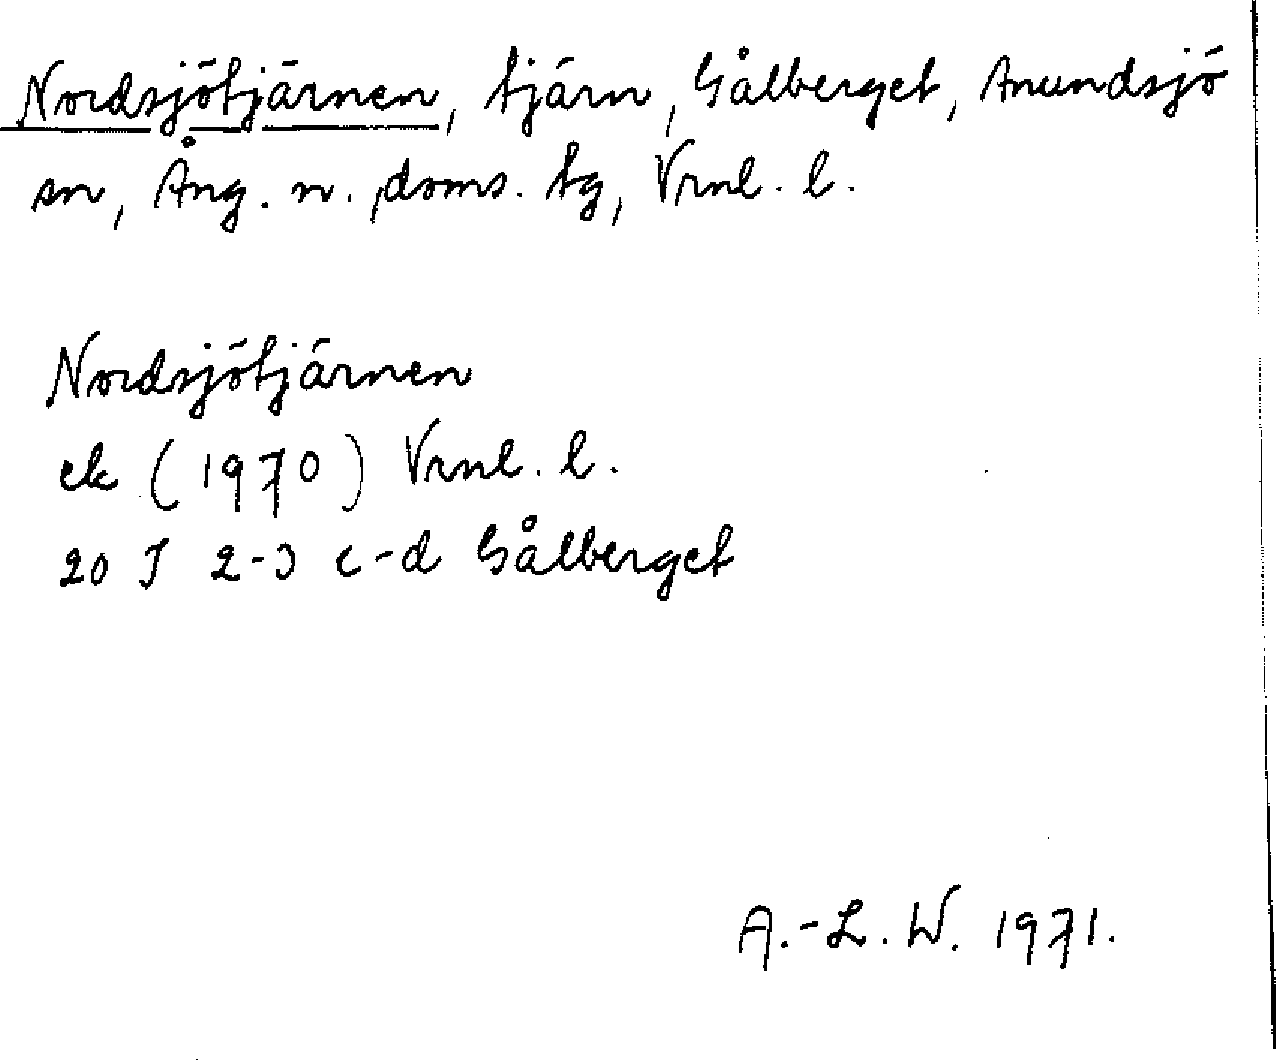 Nordsjötjärnen, tjärn, Gålberget, Anundsjö
sn, Ång. n. doms. tg, Vrnl. l.
Nordsjötjärnen
ek (1970) Vrnl. l.
20 J 2-3 c-d Gålberget
A.-L. W. 1971.